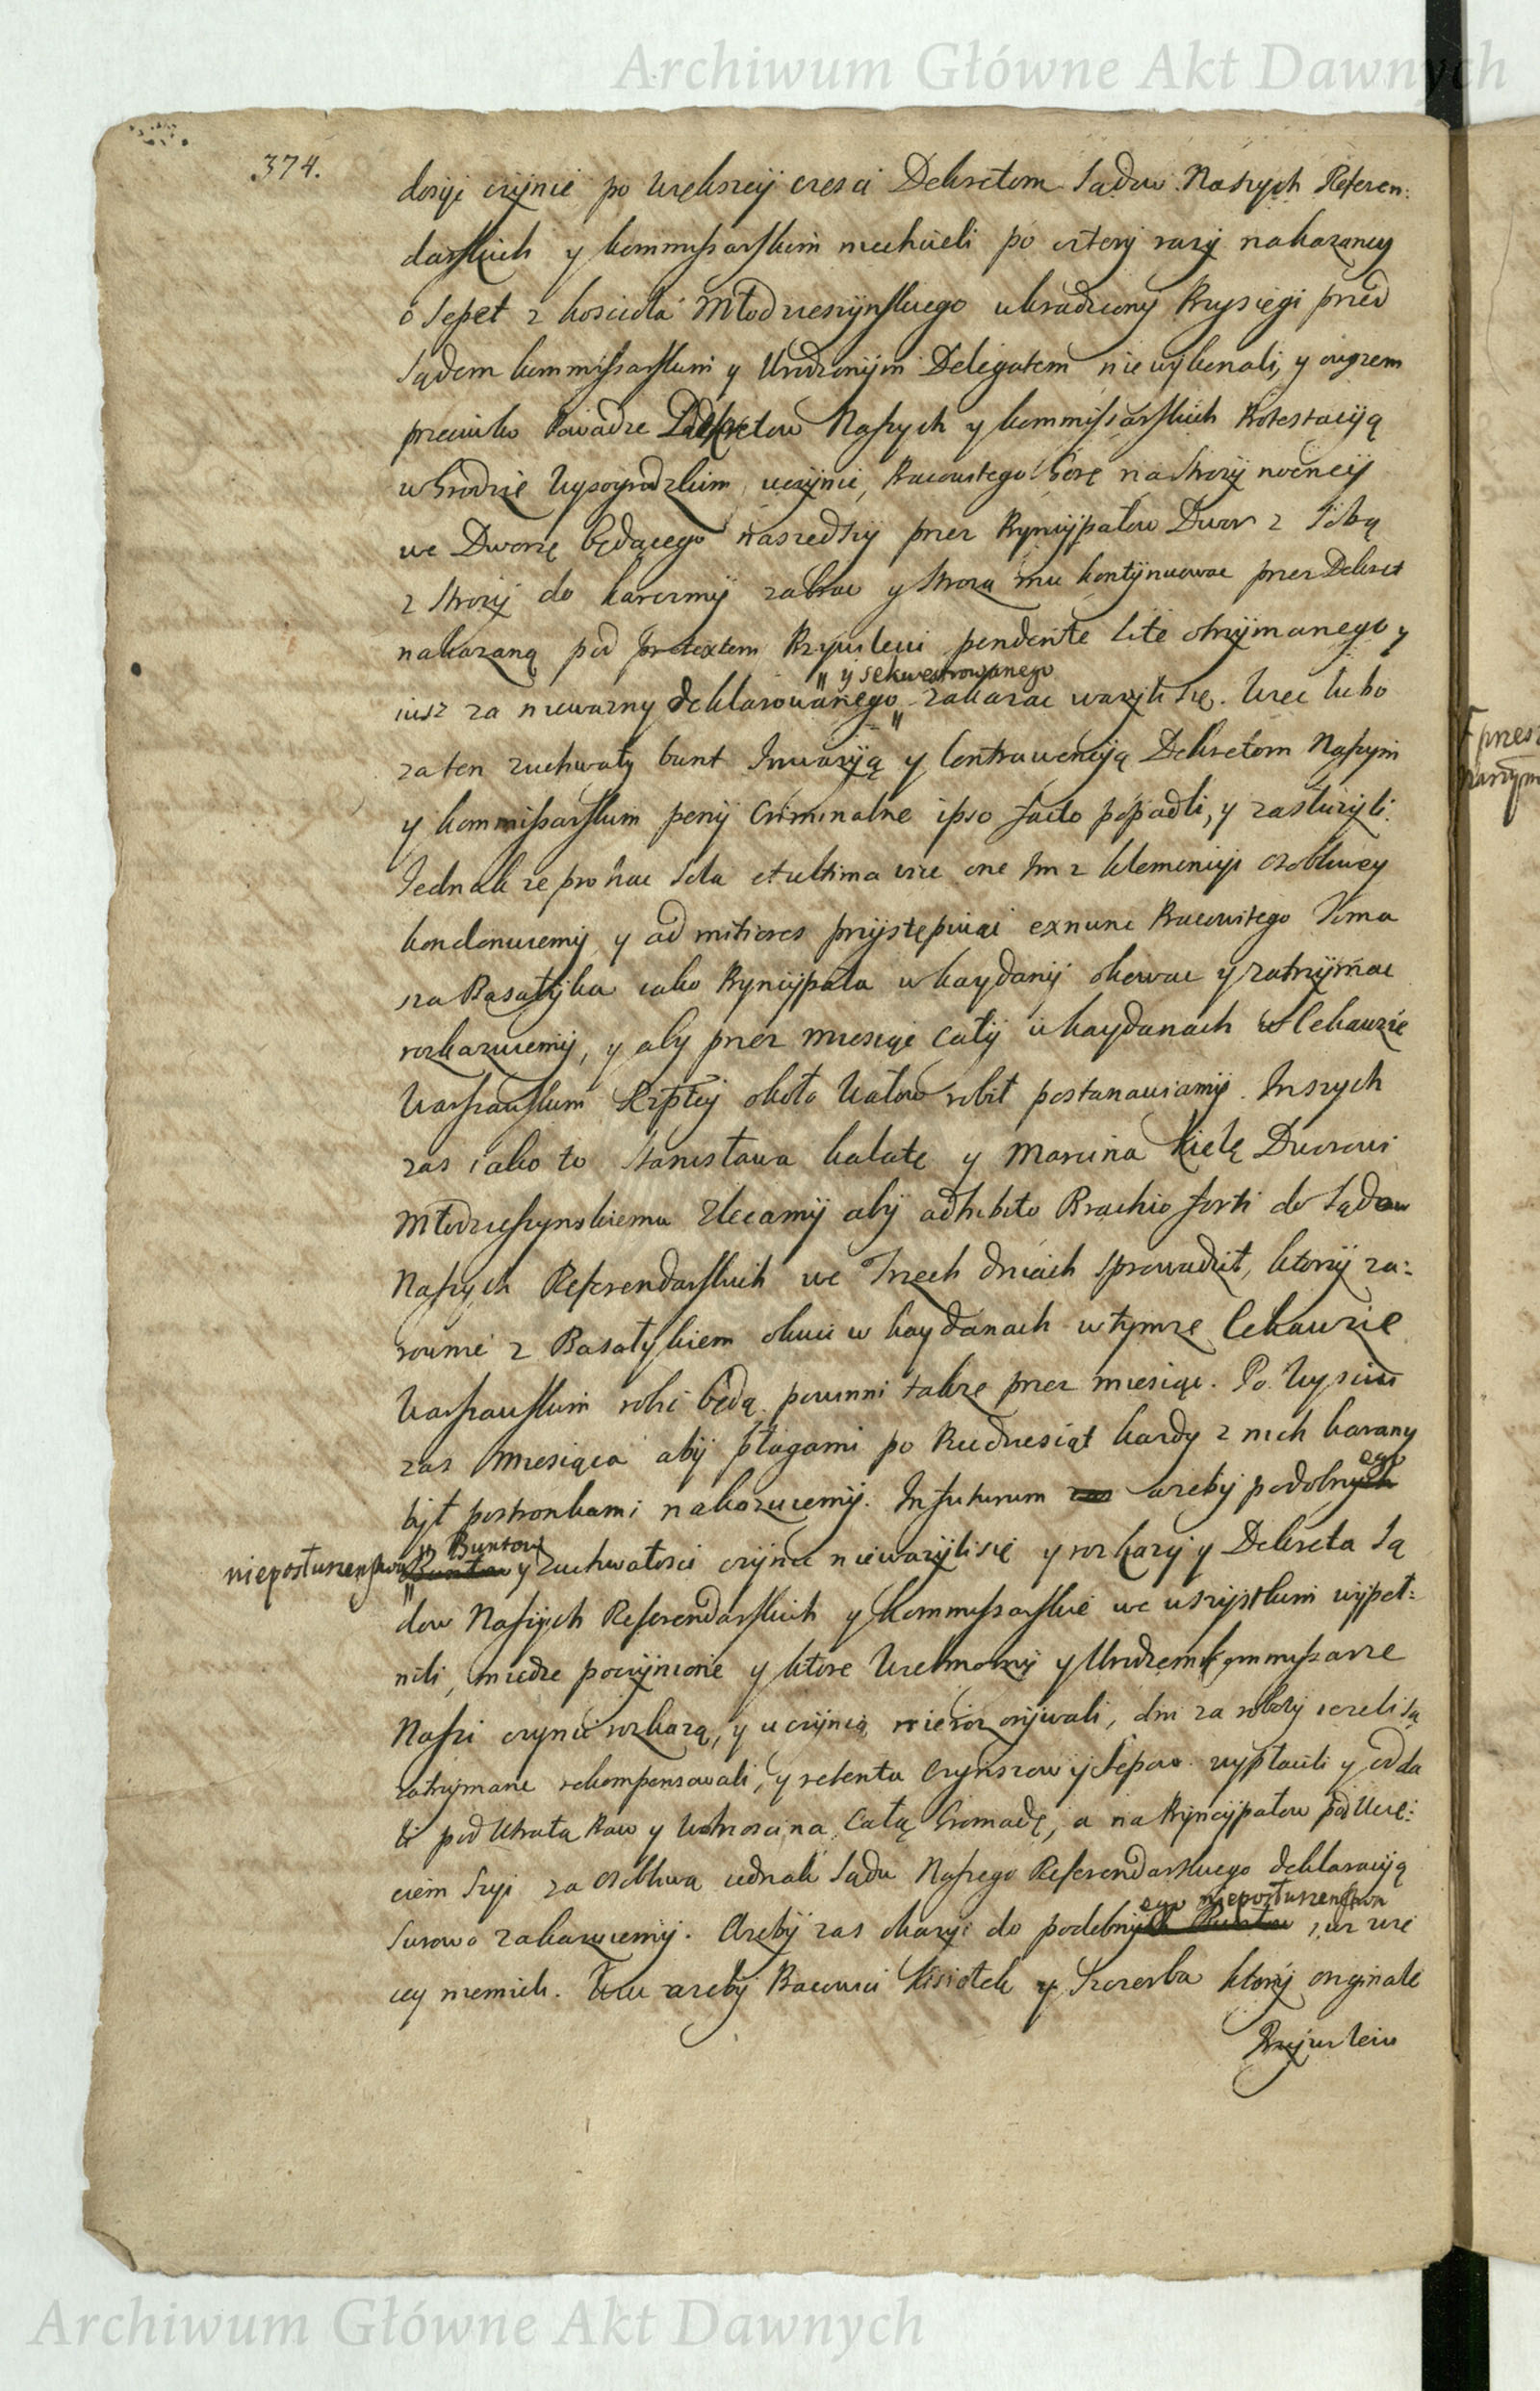 Archiwum Główne Akt Dawnych
374.
dosyć czynić po większey części Dekretom Sądów Naszych Referen:
darskich y kommissarskim niechcieli po cztery razy nakazaney
o Sepet z kościoła Młodzieszynskiego ukradziony Przysięgi przed
Sądem kommissarskim y Urodzonym Delegatem nie wykonali, y owszem
przeciwko Powadze Dekretow Naszych y kommissarskich Protestacyją
w Grodzie Wyszogrodzkim uczynić, Pracowitego Gorę na Stroży nocney
we Dworze będącego naszedszy przez Pryncypałow Dwor z Sobą
z Stroży do karczmy zabrać y Stroza mu kontynuowac przez Dekret
nakazaną pod pretextem Przywileiu pendente lite otrzymanego y
iusz za niewazny deklarowanego „ y sekwestrowanego „ zakazac wazyli się. Więc lubo
za ten zuchwały bunt Inwazyją y Contrawencyją Dekretom Naszym
y kommissarskim peny Criminalne ipso facto popadli, y zasłuzyli.
Jednak ze pro hac sola et ultima vice one Im z klemencyi osobliwey
kondonuiemy y ad mitiores przystępuiąc exnunc Pracowitego Toma
sza Basałyka iako Pryncypała w kaydany okowac y zatrzymac
rozkazuiemy, y aby przez miesiąc cały w kaydanach w Cekauzie
Warszawskim Rzpltey około Wałow robił postanawiamy. Inszych
zas iako to Stanisława kalatę y Marcina Kielę Dworowi
Młodzieszynskiemu zlecamy aby adhibito Brachio forti do Sądow
Naszych Referendarskich we Trzech dniach sprowadził, ktory za:
rowno z Basałykiem okuci w kaydanach w tymze Cekauzie
Warszawskim robić będą powinni takze przez miesiąc. Po Wysciu
zas Miesiąca aby plagami po Piędziesiąt kazdy z nich karany
był postronkami nakazuiemy. In futurum zas azeby podobnych ego
nieposłuszenstwa „ Buntow Buntow y zuchwałosci czynic niewazyli się y rozkazy y Dekreta Są
dow Naszych Referendarskich y kommissarskie we wszystkim wypeł:
nili, miedze poczynione y ktore Wielmozny y Urodzeni kommissarze
Naszi czynic rozkazą, y uczynią nierozorywali, dni za roboty iezeli są
zatrzymane rekompensowali, y retenta Czynszow y Sepow wypłacili y odda
li pod Utratą Praw y Wolnosci na Całą Gromadę, a na Pryncypałow pod Ucię:
ciem Szyi za osobliwą iednak Sądu Naszego Referendarskiego deklaracyją
surowo zakazuiemy. Azeby zas okazyi do podobnych Buntow ego nieposłuszenstwa iuz wię
cey niemieli. Więc azeby Pracowici kisiołek y Szczerba ktory originale
Przywileiu
Archiwum Główne Akt Dawnych